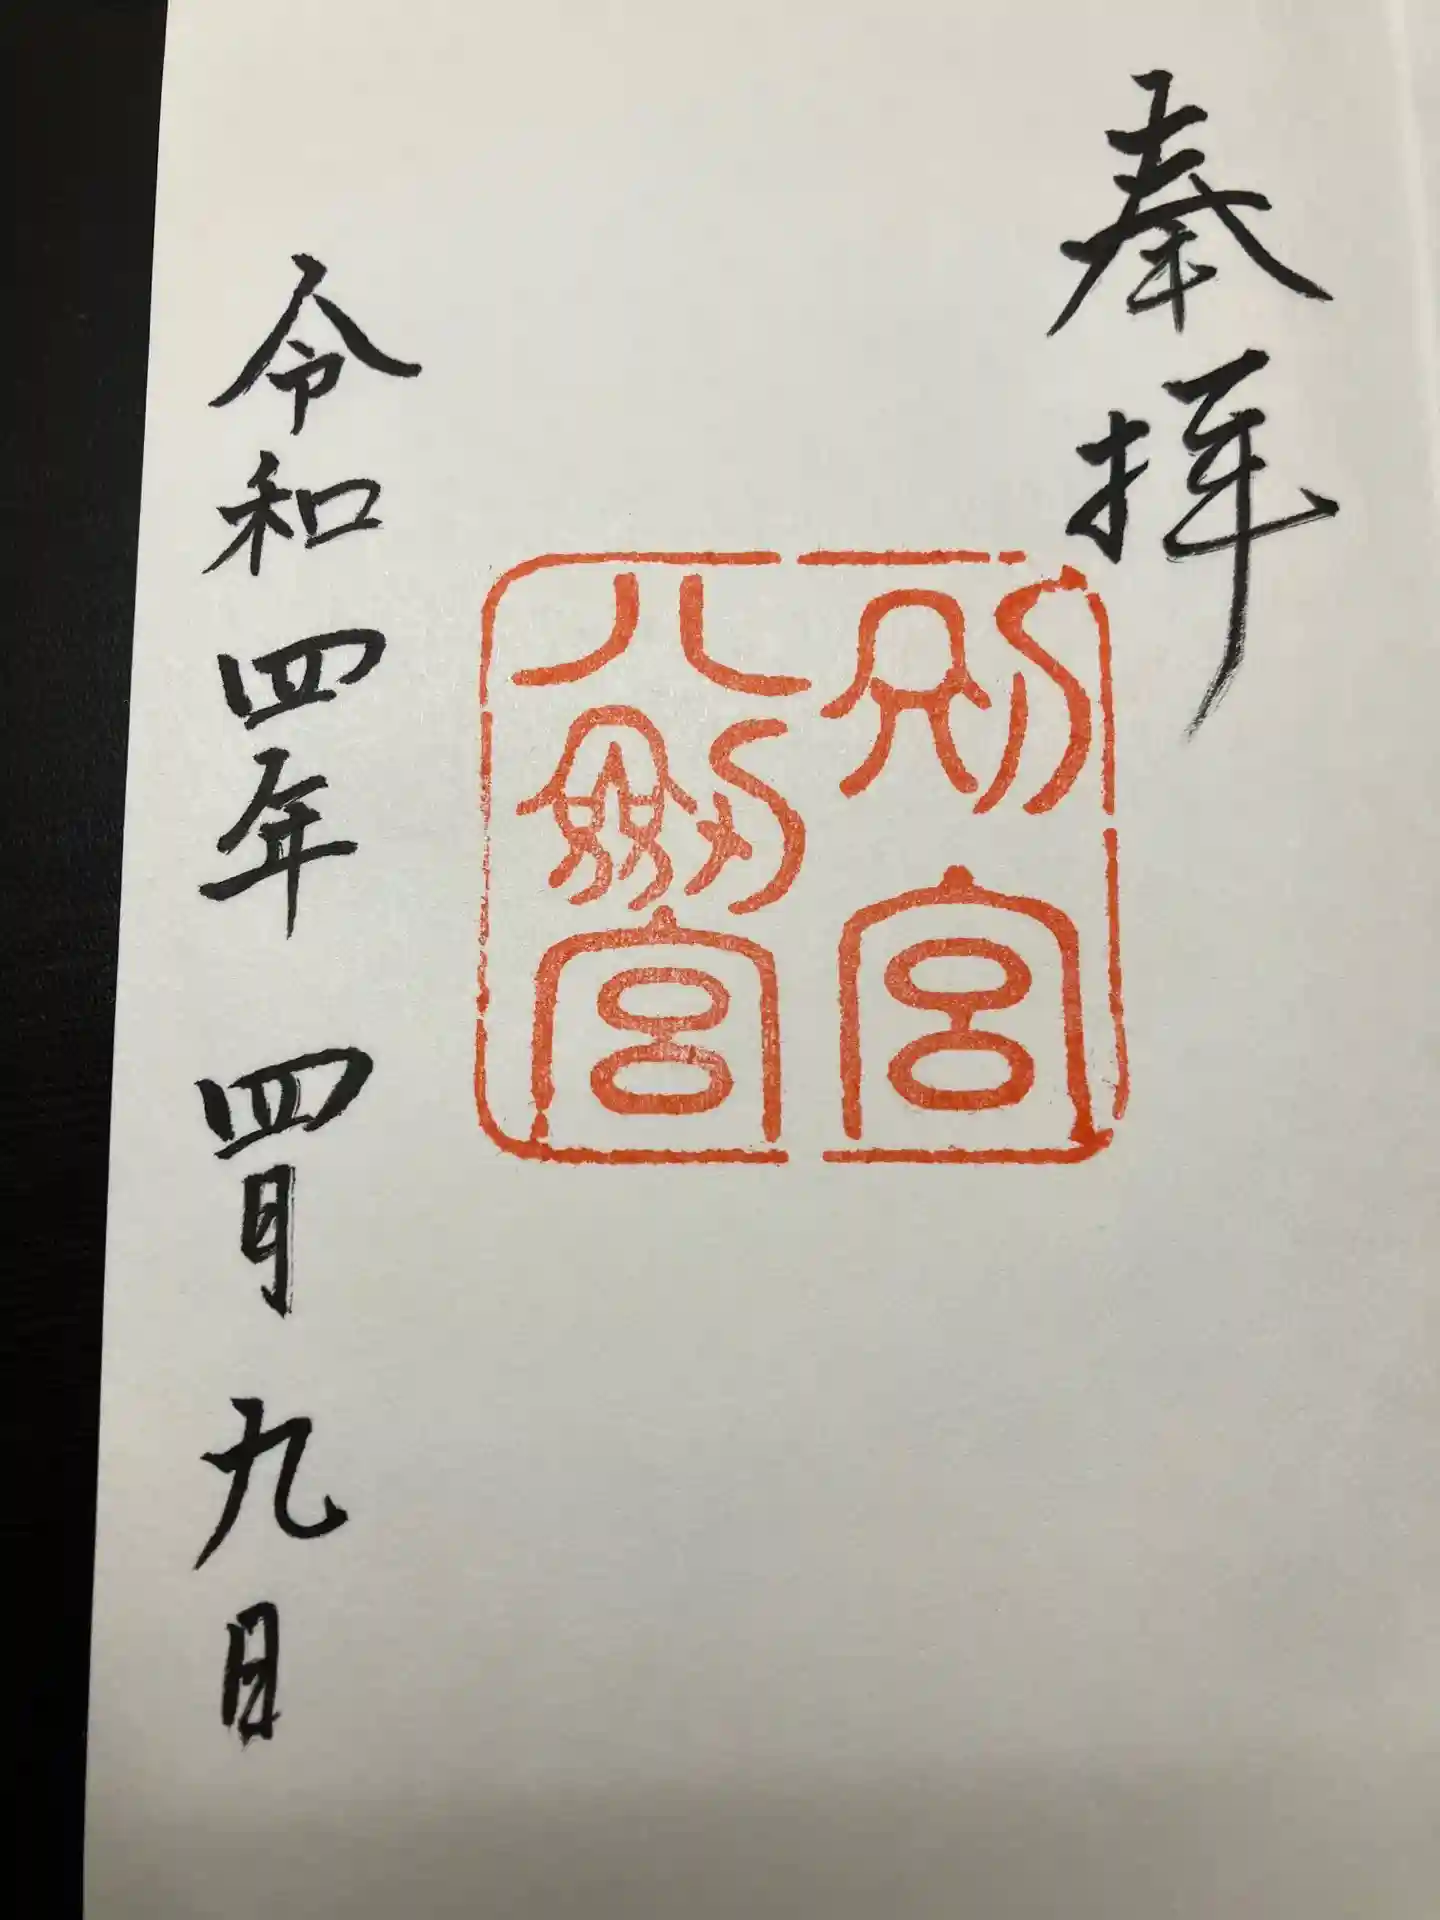 奉拝
別宮
八劔宮
令和四年四月九日